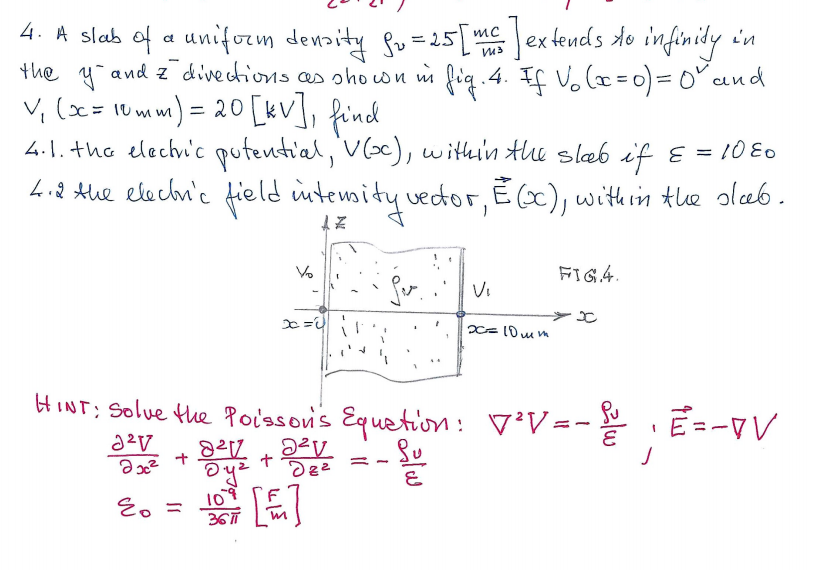 4. A slab of a uniform density ρᵥ = 25 [mC/m³] extends to infinity in
the y⁻ and z⁻ directions as shown in fig. 4. If V₀(x=0) = 0ⱽ and
V₁ (x = 10 mm) = 20 [kV], find
4.1. the electric potential, V(x), within the slab if ε = 10ε₀
4.2 the electric field intensity vector, E⃗(x), within the slab.
Z
V₀ ρᵥ. V₁ FIG.4.
x=0 x=10mm x
HINT: Solve the Poisson's Equation: ∇²V = − ρᵥ/ε ; E⃗ = −∇V
∂²V/∂x² + ∂²V/∂y² + ∂²V/∂z² = − ρᵥ/ε
ε₀ = 10⁻⁹/36π [F/m]